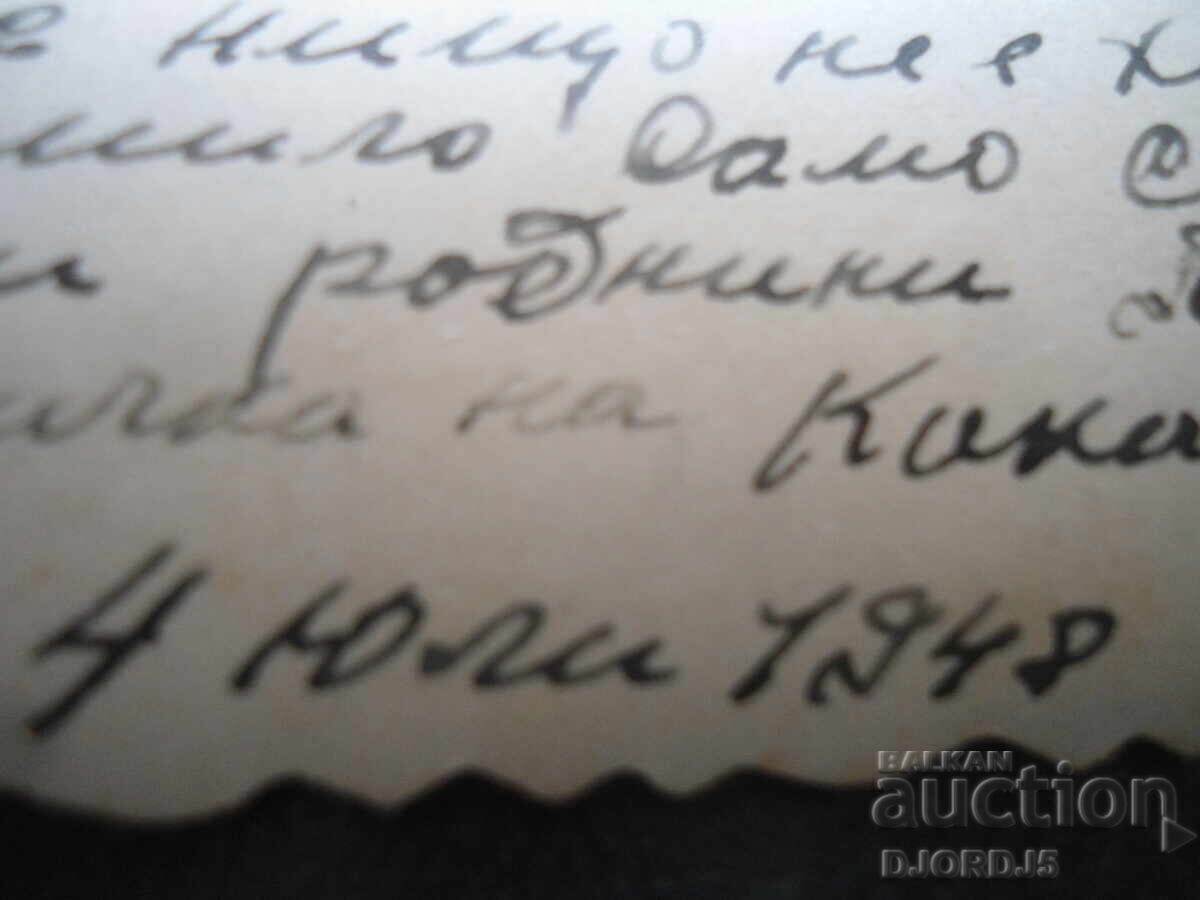 е нищо не е х
мило само с
и родници
ичка на Кака
4 Юли 1948
BALKAN
auction
DJORDJ5